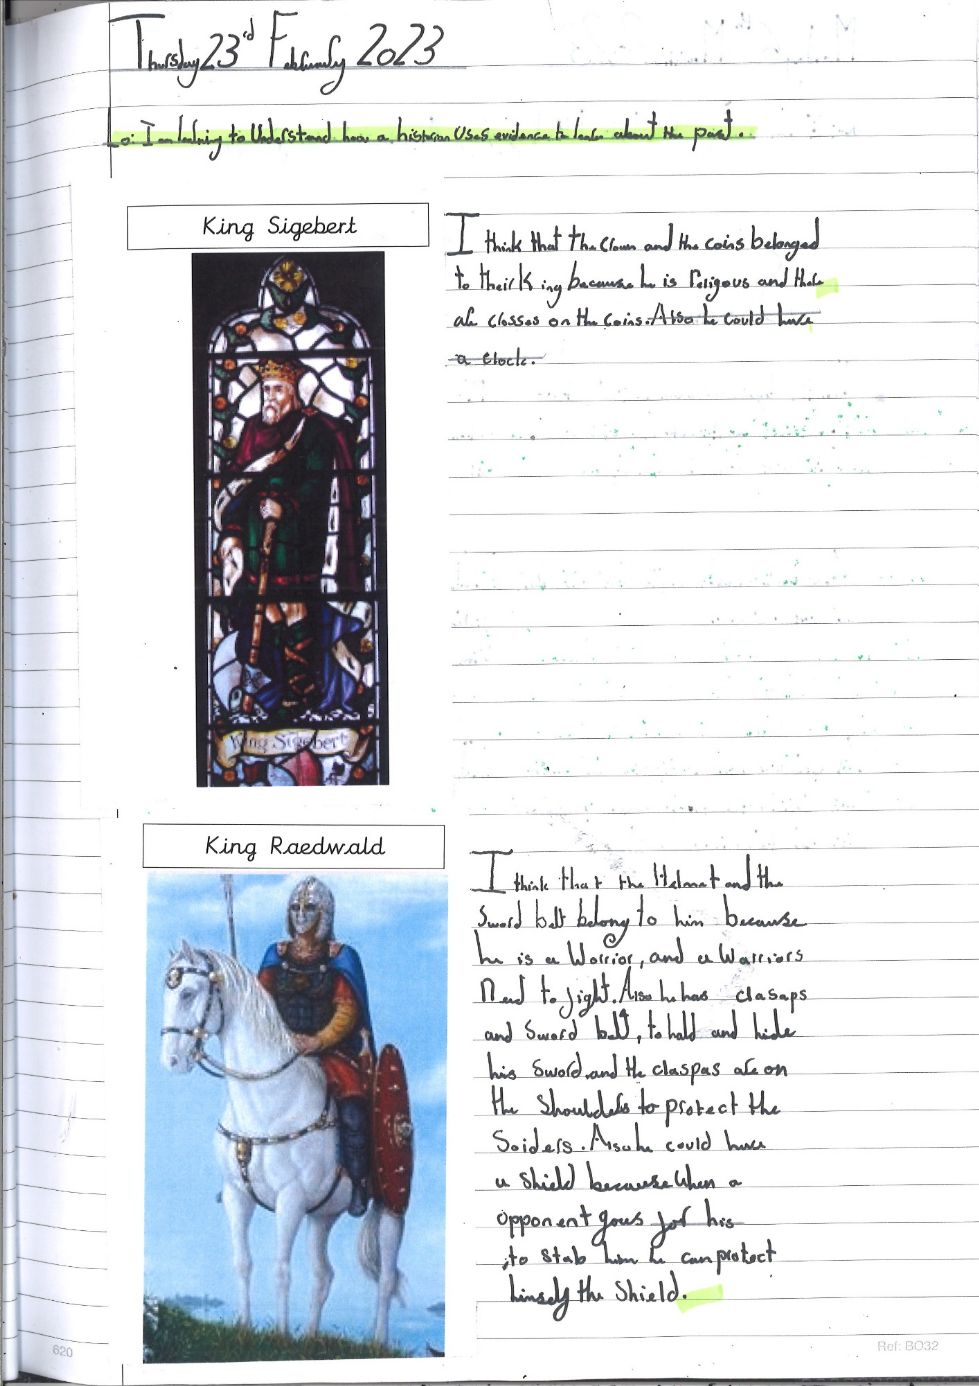 Thursday 23rd February 2023
Lo: I am learning to Understand how a historian Uses evidence to learn about the past.
King Sigebert
I think that the Crown and the coins belonged
to their King because he is religous and there
are crosses on the coins. Also he could have
a clock.
King Sigebert
King Raedwald
I think that the Helmet and the
Sword belt belong to him because
he is a Worrior, and a Warriors
Need to fight. Also he has clasaps
and Sword belt, to hold and hide
his Sword and the claspas are on
the Shoulders to protect the
Soiders. Also he could have
a Shield because when a
opponent gous for his
to stab him he can protect
himself the Shield.
620
Ref: BO32